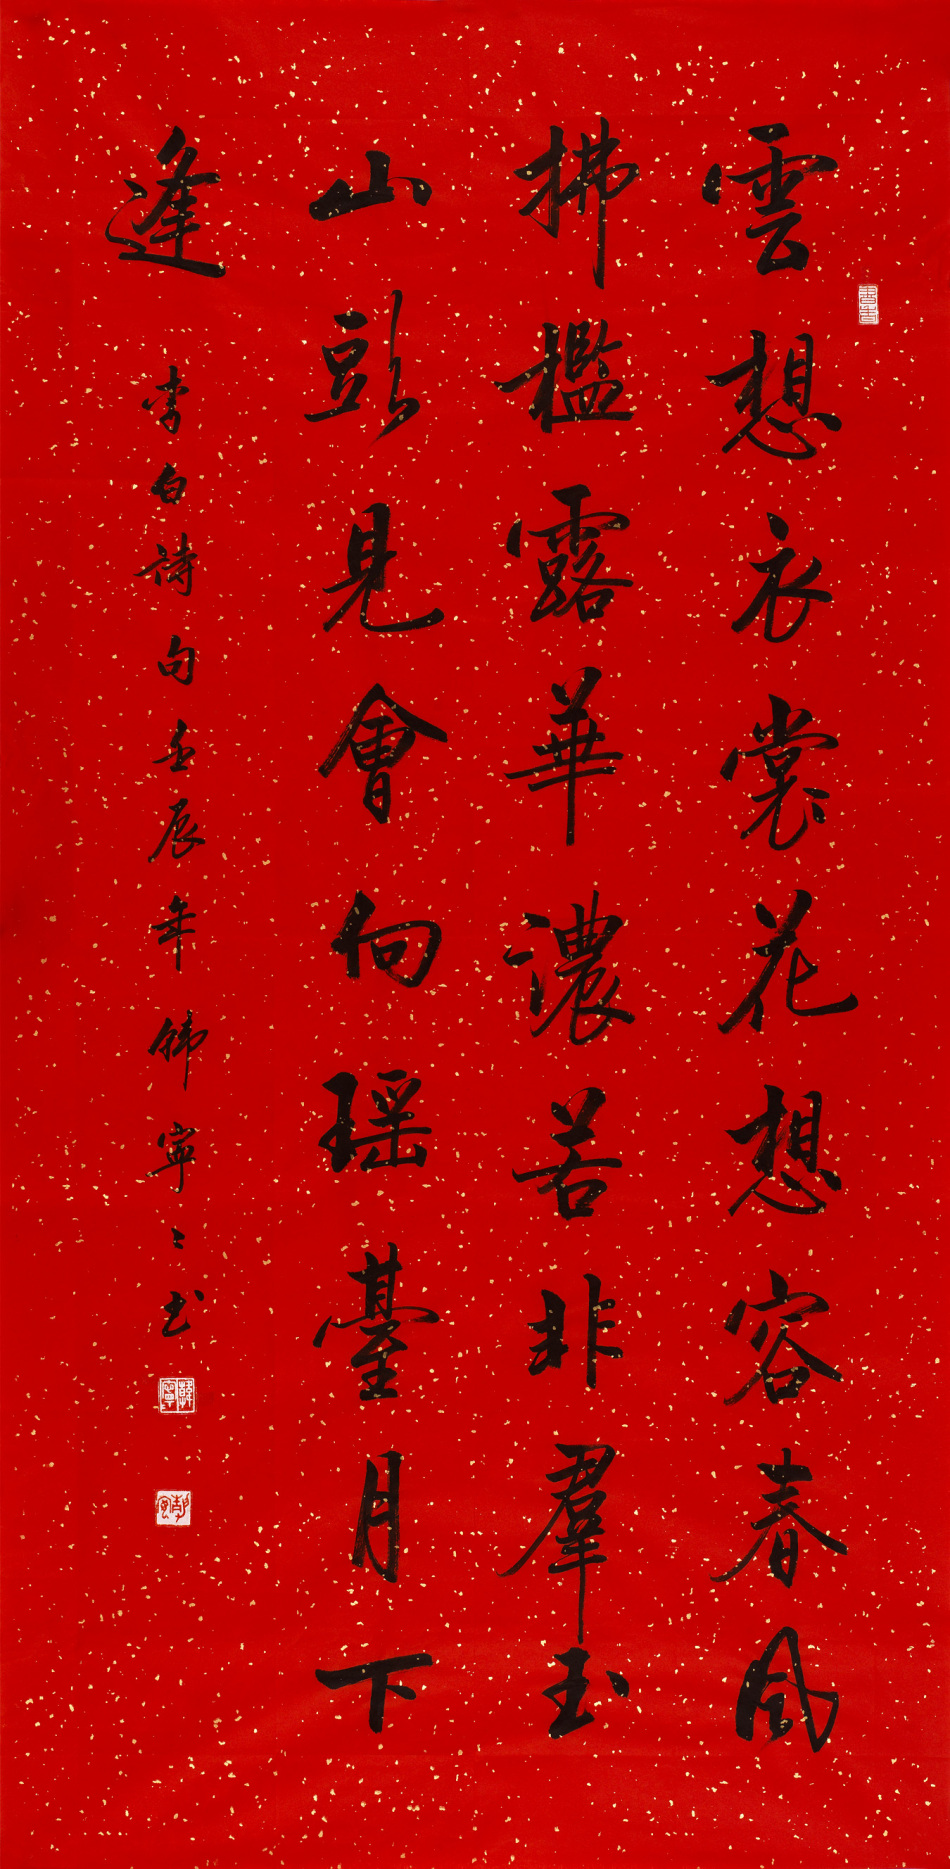 雲想衣裳花想容春風
拂檻露華濃若非羣玉
山頭見會向瑶臺月下
逢
李白詩句壬辰年韩寧〻书
韓寧